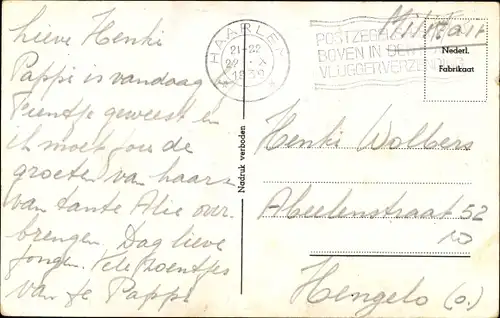 Lieve Henki
Pappi is vandaag
Tientje geweest en
ik moet jou de
groeten van haar
van tante Alie over
brengen. Dag lieve
jongen. Vele zoentjes
van je Pappi
HAARLEM
21-22
X
1939
POSTZEGEL
BOVEN IN DEN
VLUGGER VERZENDING
Militair
Nederl.
Fabrikaat
Nadruk verboden
Henki Wolbers
Abeelenstraat 52
Hengelo (O.)